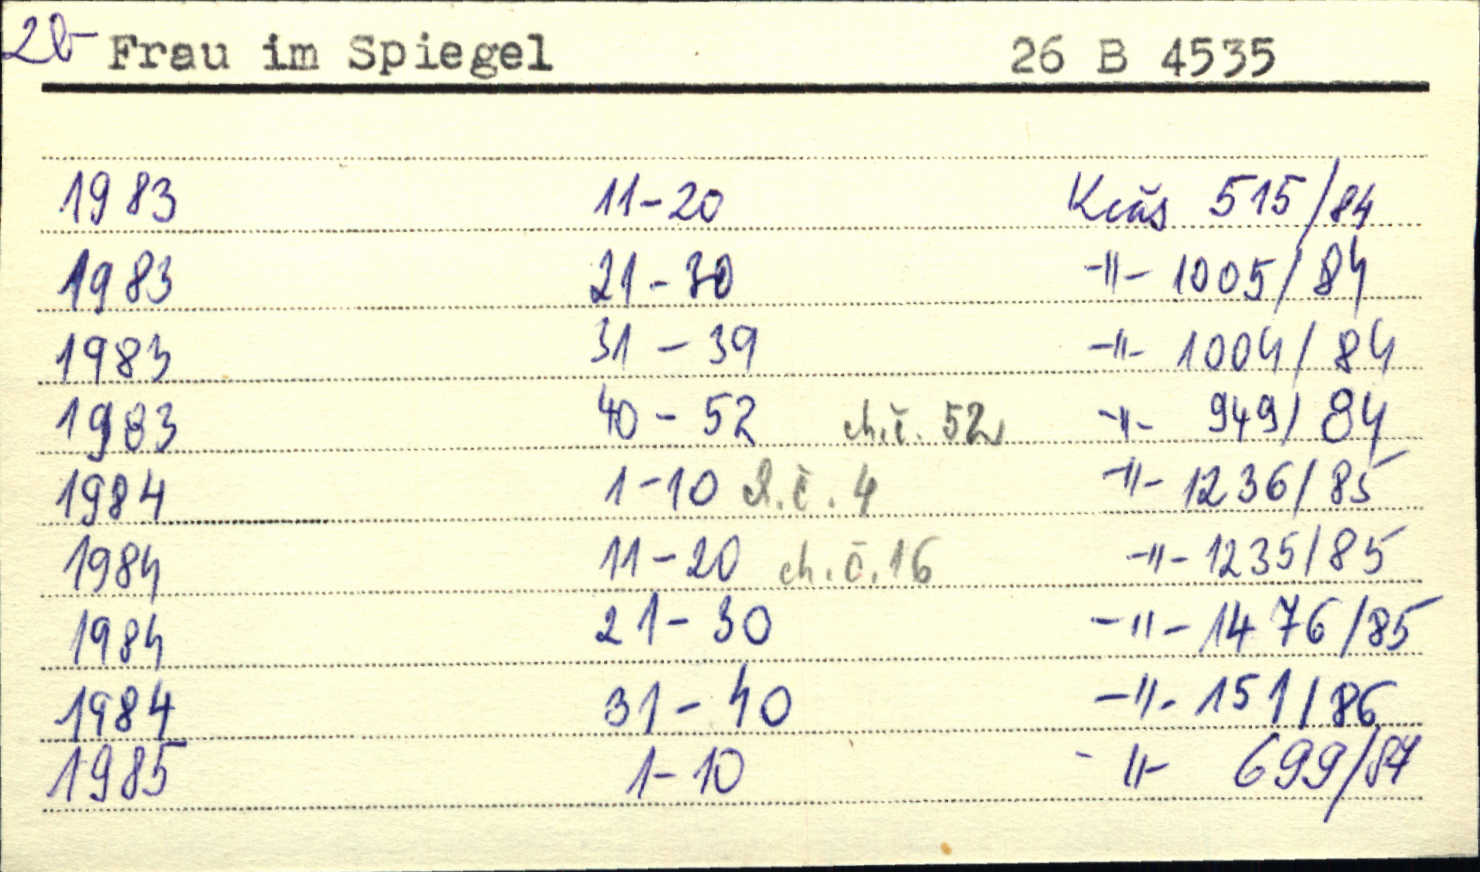 Frau im Spiegel 26 B 4535
1983 11-20 Kčás 515/84
1983 21-30 -"- 1005/84
1983 31-39 -"- 1004/84
1983 40-52 ch.č. 52 -"- 949/84
1984 1-10 č. 4 -"- 1236/85
1984 11-20 ch.č.16 -"- 1235/85
1984 21-30 -"- 1476/85
1984 31-40 -"- 151/86
1985 1-10 -"- 699/87